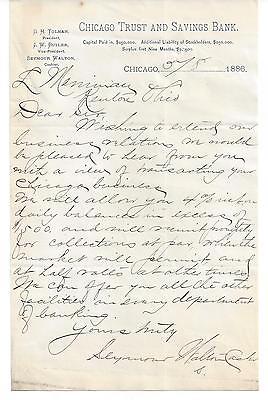 CHICAGO TRUST AND SAVINGS BANK.
D. H. TOLMAN,
President.
P. W. BUTLER,
Vice-President.
SEYMOUR WALTON,
Cashier.
Capital Paid in, Additional Liability of Stockholders,
Surplus first Nine Months,
CHICAGO, 1886.
Kenton Ohio
Dear Sir,
Wishing to extend our
business relations we would
be pleased to hear from you
with a view of your
Chicago business
We will allow you 4% int on
daily balances in excess of
$500. and will remit promptly
for collections at par when the
market will permit and
at half rates at other times.
We can offer you all the other
facilities in every department
of banking.
Yours truly
Seymour Walton Cash